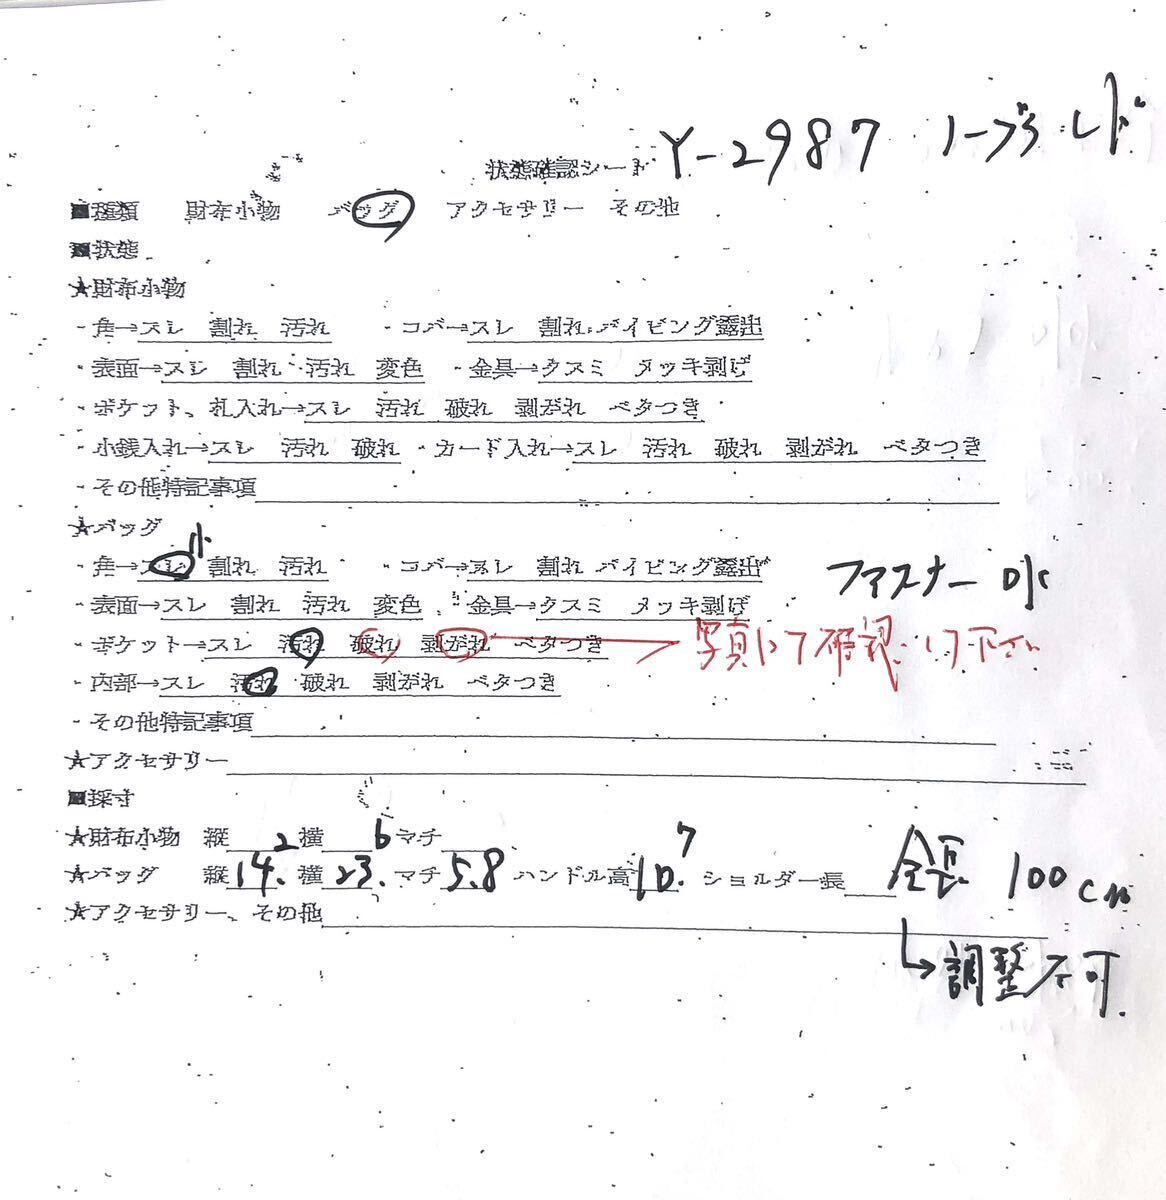 状態確認シート Y-2987 ノーブランド
■種類 財布小物 バッグ アクセサリー その他
■状態
★財布小物
・角→スレ 割れ 汚れ ・コバ→スレ 割れ パイピング露出
・表面→スレ 割れ 汚れ 変色 ・金具→クスミ メッキ剥げ
・ポケット、札入れ→スレ 汚れ 破れ 剥がれ ベタつき
・小銭入れ→スレ 汚れ 破れ ・カード入れ→スレ 汚れ 破れ 剥がれ ベタつき
・その他特記事項
★バッグ
小
・角→スレ 割れ 汚れ ・コバ→スレ 割れ パイピング露出 ファスナー
・表面→スレ 割れ 汚れ 変色 ・金具→クスミ メッキ剥げ
・ポケット→スレ 汚れ 破れ 剥がれ ベタつき 写真にて確認して下さい
・内部→スレ 汚れ 破れ 剥がれ ベタつき
・その他特記事項
★アクセサリー
■採寸
★財布小物 縦 横 マチ
★バッグ 縦14.2 横23.6 マチ5.8 ハンドル高10.7 ショルダー長 全長 100cm
★アクセサリー、その他
↳調整不可